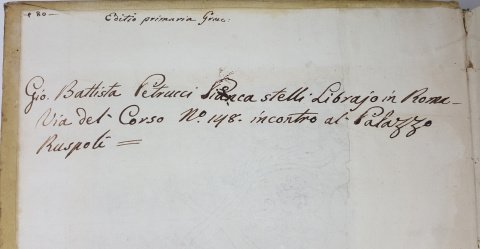 80—
Editio primaria Graec:
Gio. Battista Petrucci Piancastelli Librajo in Roma–
Via del Corso No. 148. incontro al Palazzo
Ruspoli =